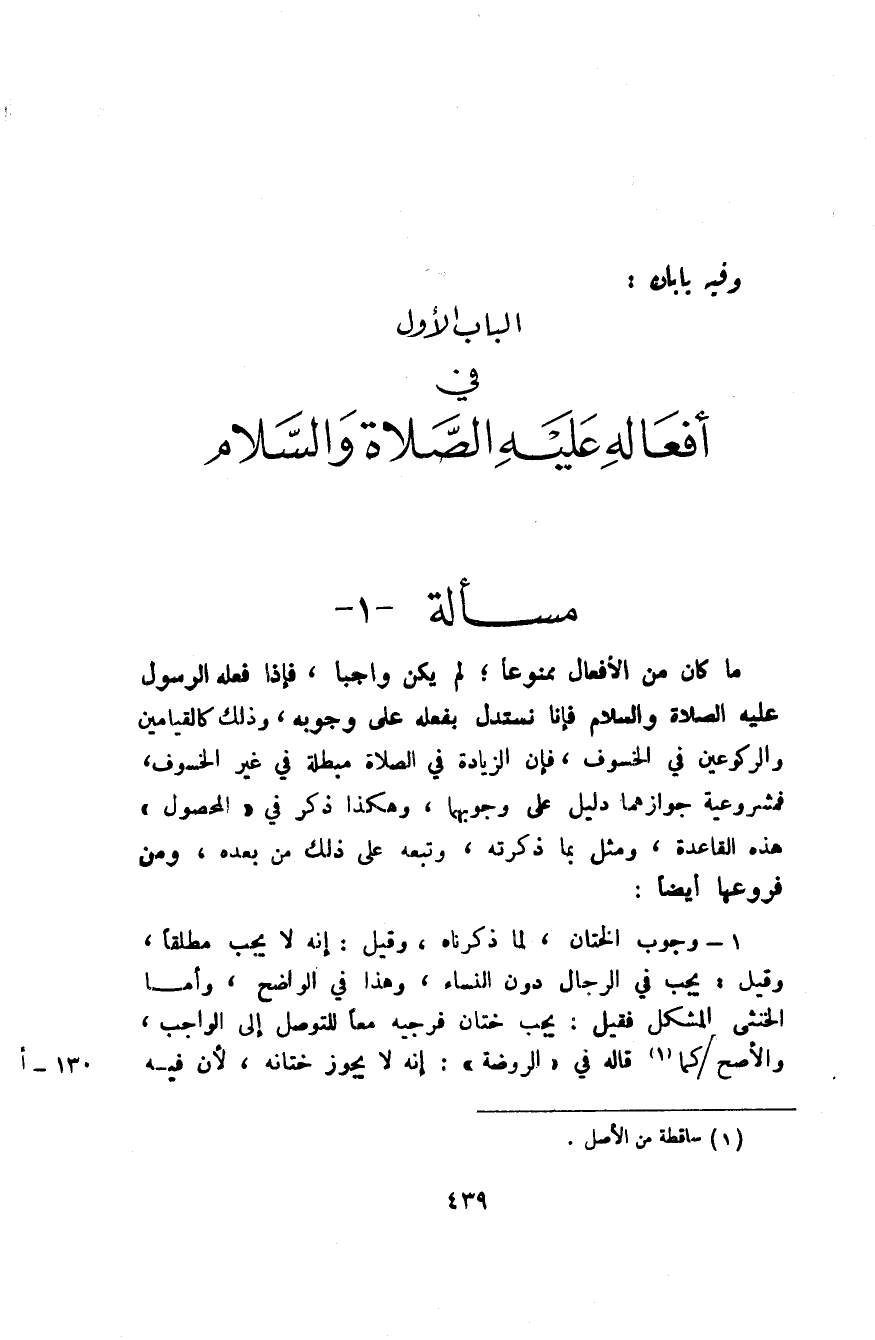 وفيه بابان :
الباب الأول
في
أفعَاله عَليَـْـهِ الصَّلاة وَالسَّلام
مســـألة -١-
ما كان من الأفعال ممنوعاً ؛ لم يكن واجبا ، فإذا فعله الرسول
عليه الصلاة والسلام فإنا نستدل بفعله على وجوبه ، وذلك كالقيامين
والركوعين في الخسوف ، فإن الزيادة في الصلاة مبطلة في غير الخسوف،
فمشروعية جوازهما دليل على وجوبها ، وهكذا ذكر في « المحصول »
هذه القاعدة ، ومثل بما ذكرته ، وتبعه على ذلك من بعده ، ومن
فروعها أيضاً :
١ – وجوب الختان ، لما ذكرناه ، وقيل : إنه لا يجب مطلقاً ،
وقيل : يجب في الرجال دون النساء ، وهذا في الواضح ، وأمــا
الخنثى المشكل فقيل : يجب ختان فرجيه معاً للتوصل إلى الواجب ،
والأصح/كما (١) قاله في « الروضة » : إنه لا يجوز ختانه ، لأن فيـه ١٣٠ – أ
(١) ساقطة من الأصل .
٤٣٩